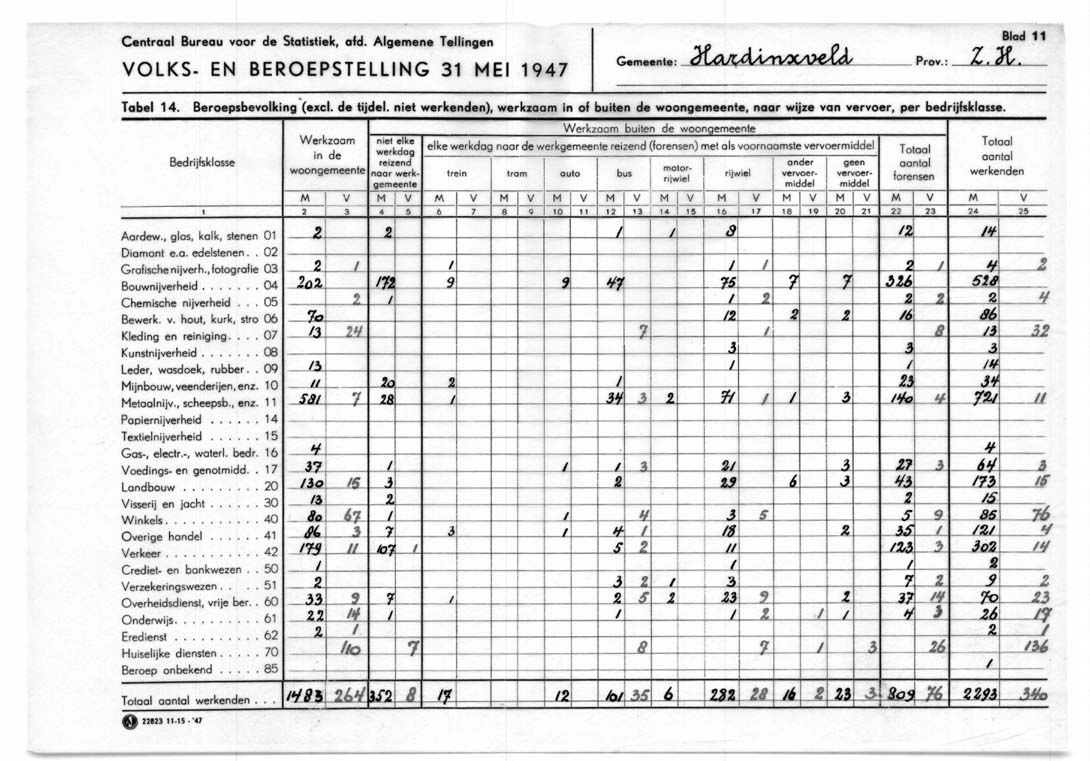 Centraal Bureau voor de Statistiek, afd. Algemene Tellingen
Blad 11
VOLKS- EN BEROEPSTELLING 31 MEI 1947
Gemeente: Hardinxveld Prov.: Z.H.
Tabel 14. Beroepsbevolking (excl. de tijdel. niet werkenden), werkzaam in of buiten de woongemeente, naar wijze van vervoer, per bedrijfsklasse.
Bedrijfsklasse
Werkzaam in de woongemeente
Werkzaam buiten de woongemeente
niet elke werkdag reizend naar werk-gemeente
elke werkdag naar de werkgemeente reizend (forensen) met als voornaamste vervoermiddel
trein tram auto bus motor-rijwiel rijwiel ander vervoer-middel geen vervoer-middel
Totaal aantal forensen
Totaal aantal werkenden
M V M V M V M V M V M V M V M V M V M V M V M V
1 2 3 4 5 6 7 8 9 10 11 12 13 14 15 16 17 18 19 20 21 22 23 24 25
Aardew., glas, kalk, stenen 01 2 2 1 1 8 12 14
Diamant e.a. edelstenen . . 02
Grafische nijverh., fotografie 03 2 1 1 1 1 2 1 4 2
Bouwnijverheid . . . . . . . 04 202 172 9 9 47 75 7 7 326 528
Chemische nijverheid . . . 05 2 1 1 2 2 2 2 4
Bewerk. v. hout, kurk, stro 06 70 12 2 2 16 86
Kleding en reiniging . . . . 07 13 24 7 1 8 13 32
Kunstnijverheid . . . . . . . 08 3 3 3
Leder, wasdoek, rubber . . 09 13 1 1 14
Mijnbouw, veenderijen, enz. 10 11 20 2 1 23 34
Metaalnijv., scheepsb., enz. 11 581 7 28 1 34 3 2 71 1 1 3 140 4 721 11
Papiernijverheid . . . . . . 14
Textielnijverheid . . . . . . 15
Gas-, electr.-, waterl. bedr. 16 4 4
Voedings- en genotmidd. . 17 37 1 1 1 3 21 3 27 3 64 3
Landbouw . . . . . . . . . . 20 130 15 3 2 29 6 3 43 173 15
Visserij en jacht . . . . . . 30 13 2 2 15
Winkels . . . . . . . . . . . 40 80 67 1 1 4 3 5 5 9 85 76
Overige handel . . . . . . . 41 86 3 7 3 1 4 1 18 2 35 1 121 4
Verkeer . . . . . . . . . . . 42 179 11 107 1 5 2 11 123 3 302 14
Crediet- en bankwezen . . 50 1 1 1 2
Verzekeringswezen . . . . 51 2 3 2 1 3 7 2 9 2
Overheidsdienst, vrije ber. . 60 33 9 7 1 2 5 2 23 9 2 37 14 70 23
Onderwijs . . . . . . . . . . 61 22 14 1 1 1 2 1 1 4 3 26 17
Eredienst . . . . . . . . . . 62 2 1 2 1
Huiselijke diensten . . . . . 70 110 7 8 7 1 3 26 136
Beroep onbekend . . . . . . 85 1
Totaal aantal werkenden . . . 1483 264 352 8 17 12 101 35 6 282 28 16 2 23 3 809 76 2293 340
22823 11-15 - '47